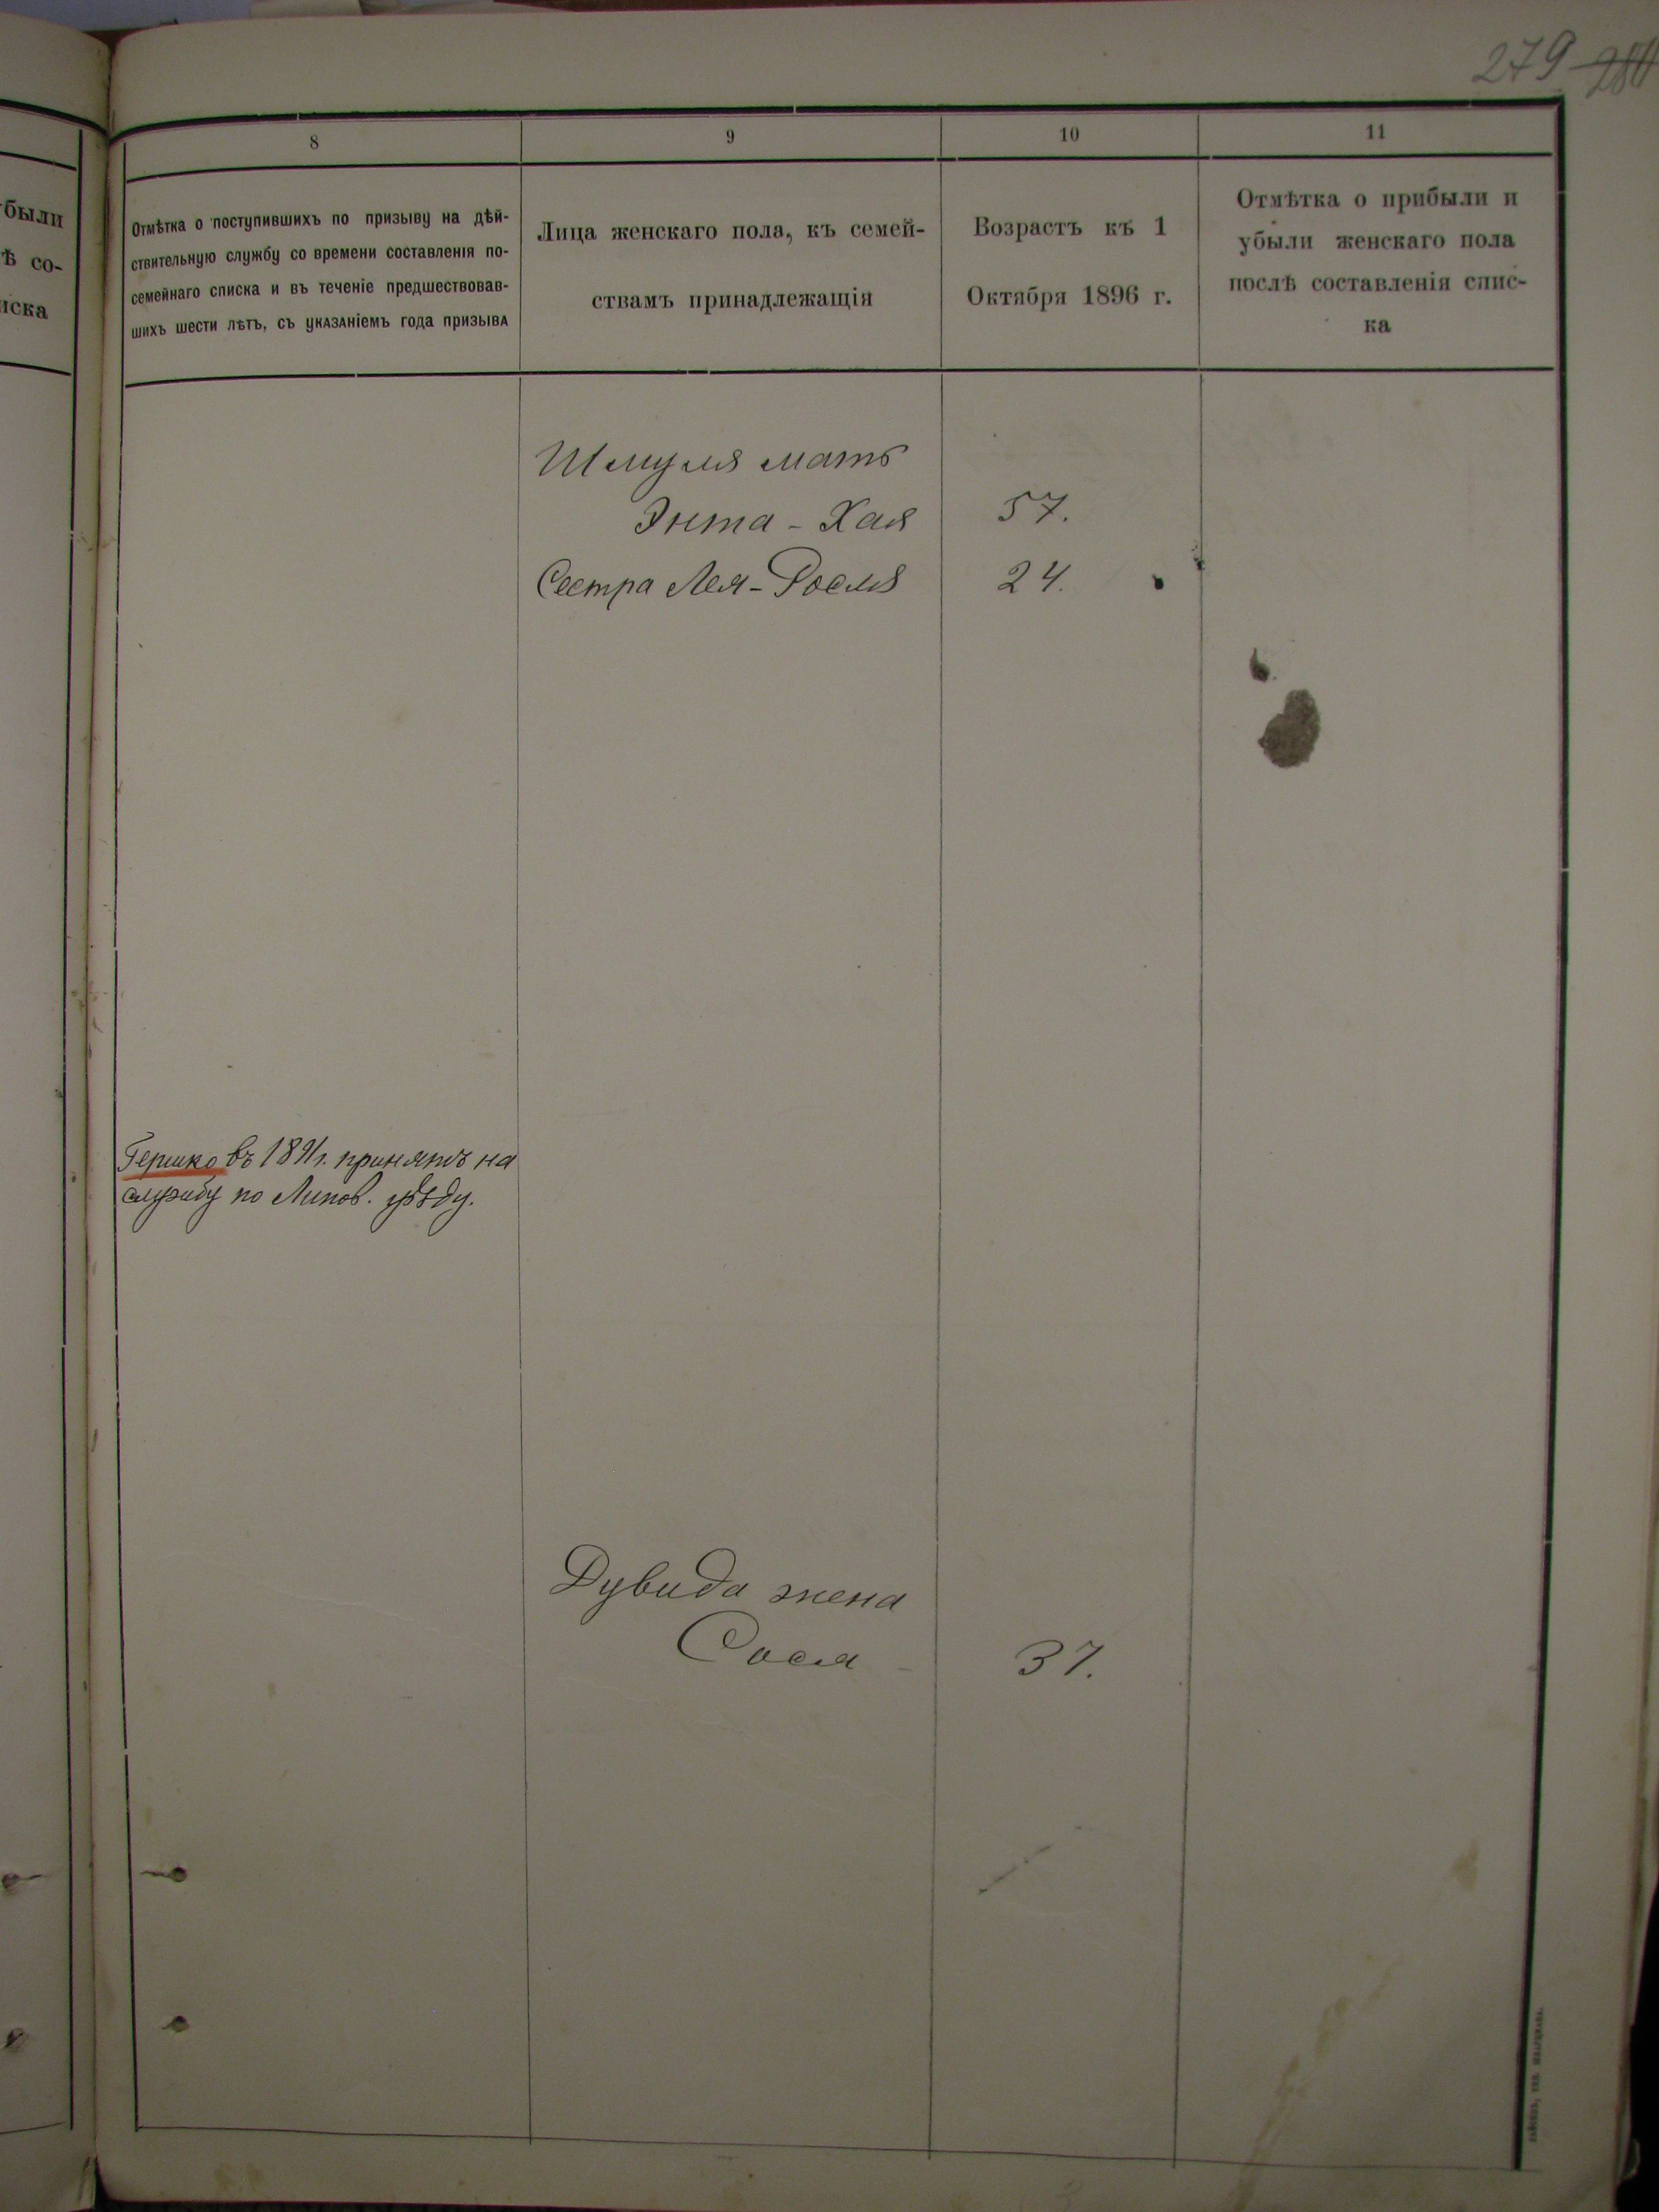 279 280
были
ѣ со-
иска
8
9
10
11
Отмѣтка о поступившихъ по призыву на дѣй-
ствительную службу со времени составленія по-
семейнаго списка и въ теченіе предшествовав-
шихъ шести лѣтъ, съ указаніемъ года призыва
Лица женскаго пола, къ семей-
ствамъ принадлежащія
Возрастъ къ 1
Октября 1896 г.
Отмѣтка о прибыли и
убыли женскаго пола
послѣ составленія спис-
ка
Шмуля мать
Энта - Хая 57.
Сестра Лея - Росля 24.
Гершко въ 1891 г. принятъ на
службу по Липов. уѣзду.
Дувида жена
Сося 37.